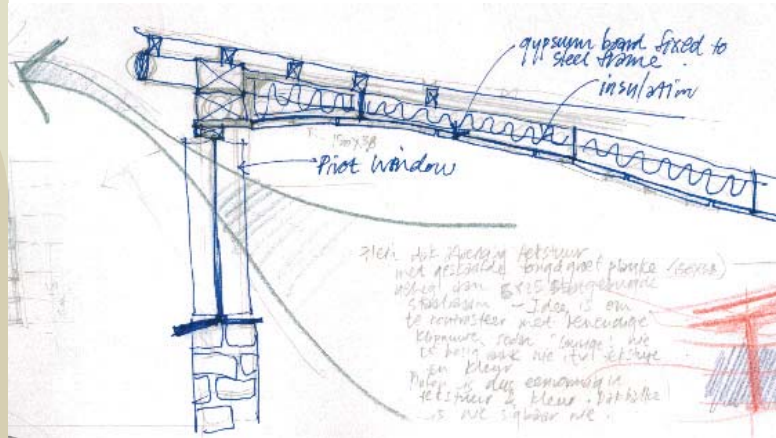 gypsum board fixed to
steel frame
insulation
150x38
Pivot window
dak tekstuur
met geskaafde tong & groef planke (150x38)
aan
staalraam - Idee is om
te kontrasteer met
klipmure, sodat "lounge" nie
te besig raak nie itv tekstuur
en kleur
is dus eenvormig in
tekstuur & kleur. Dakbalke
is nie sigbaar nie.